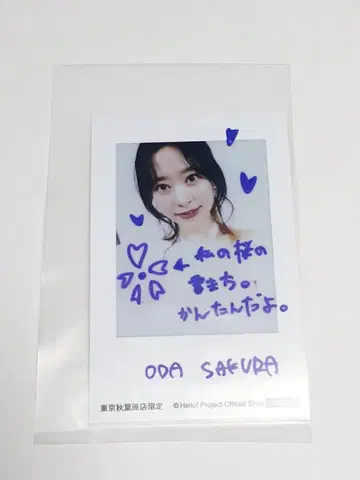 私の桜の
書きち。
かんたんだよ。
ODA SAKURA
東京秋葉原店限定
© Hello! Project Official Shop